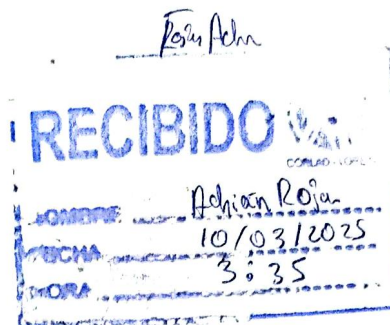 RECIBIDO
NOMBRE Adrián Rojas
FECHA 10/03/2025
HORA 3:35